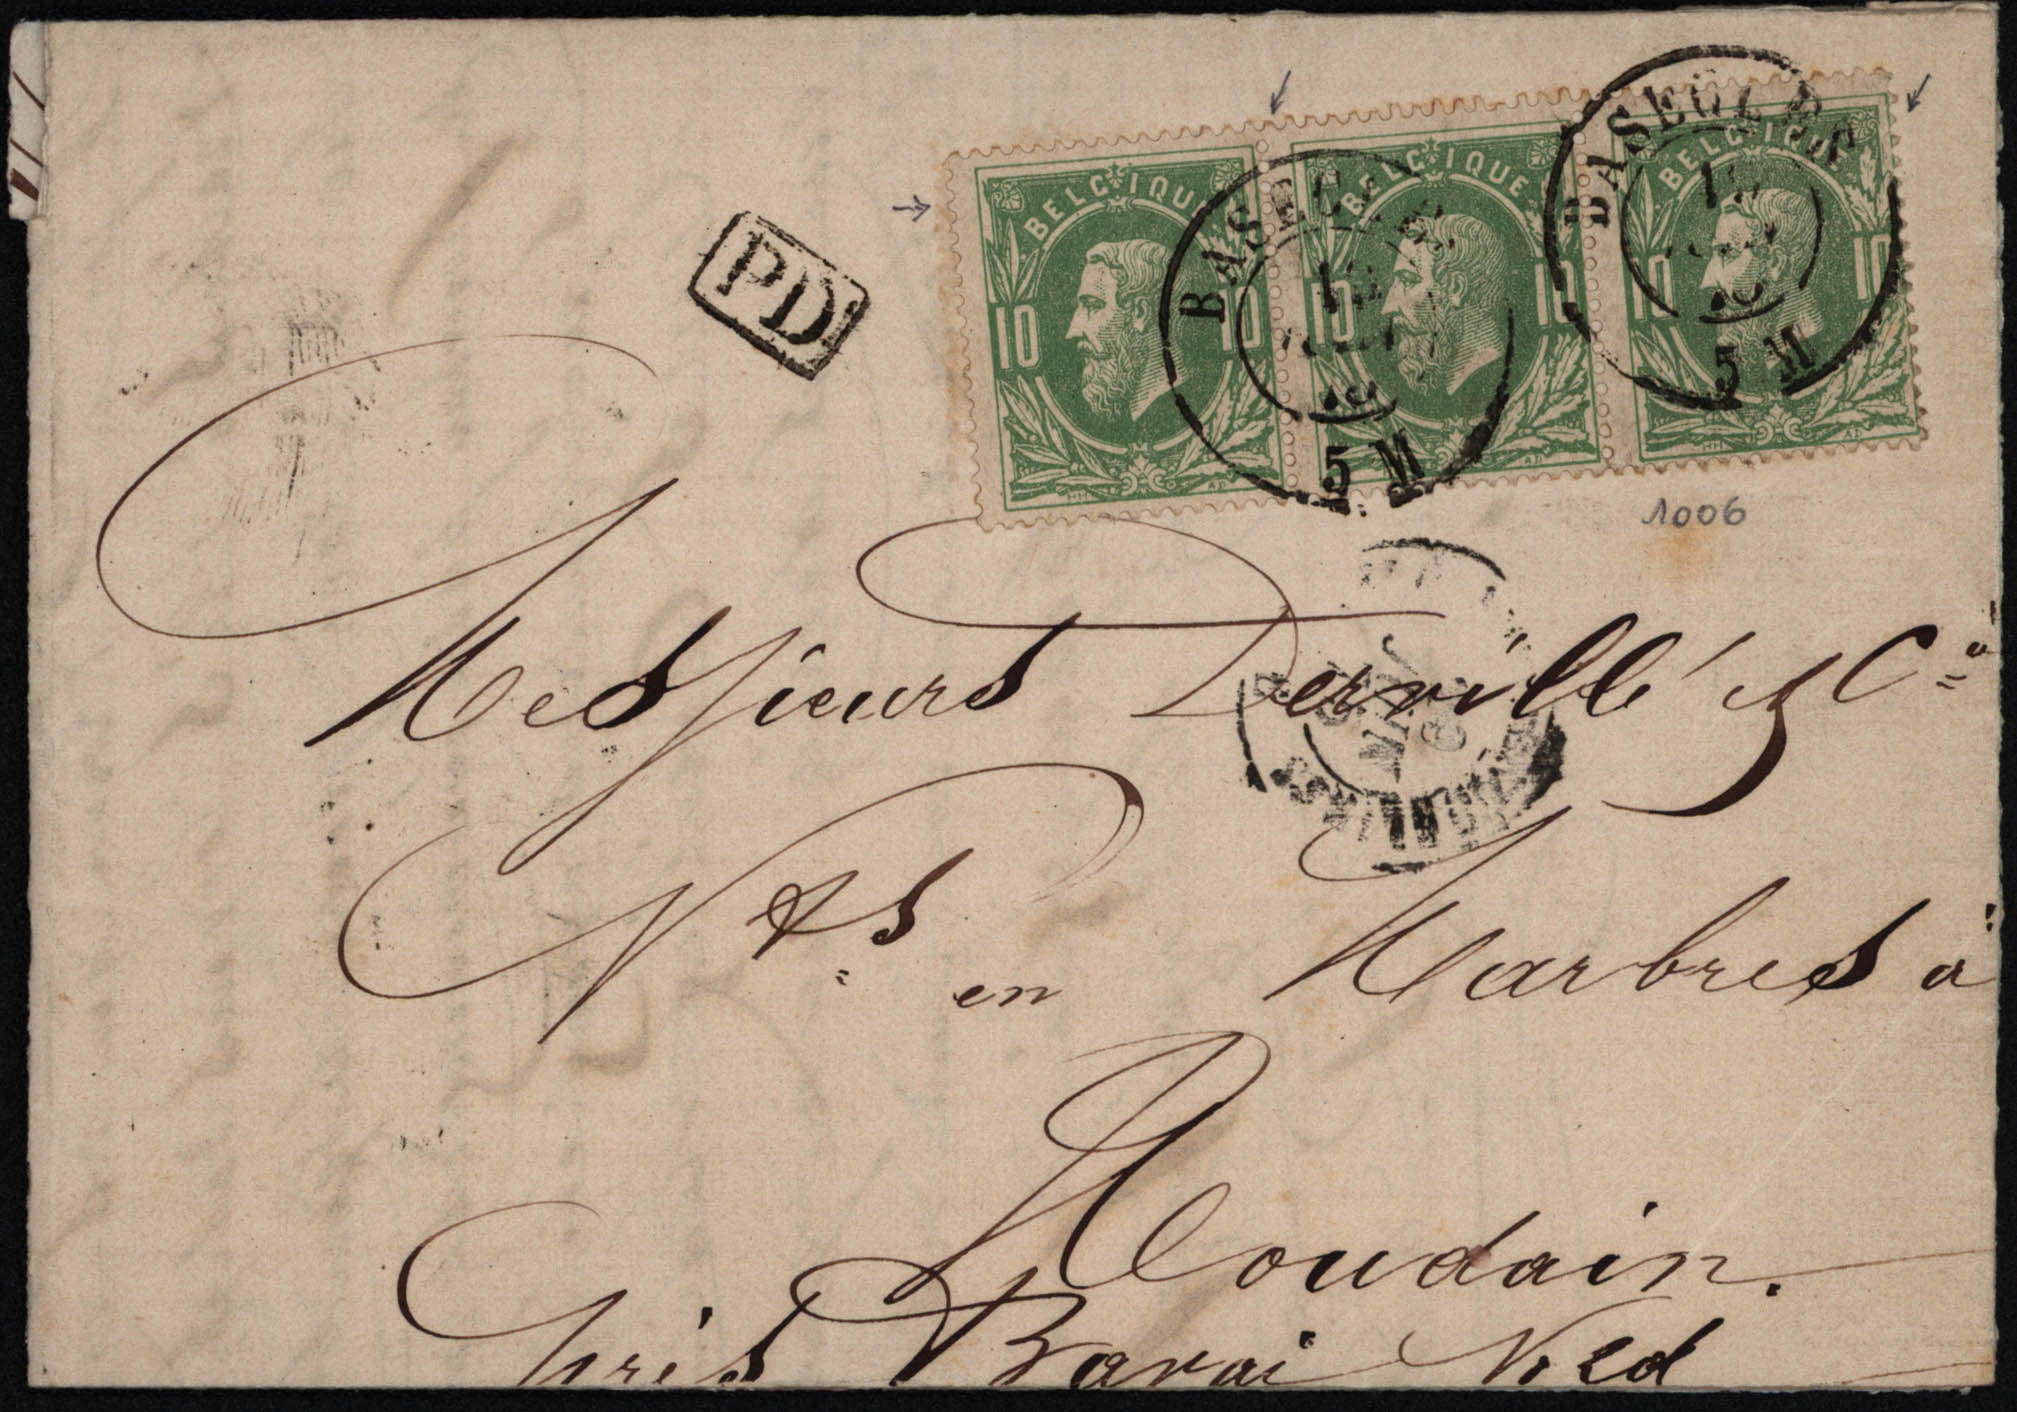 BELGIQUE BELGIQUE BELGIQUE
10 10 10 10 10 10
BASECLES
5 M
BASECLES
5 M
PD
1006
Messieurs Derville & Cie
Nts en Marbres à
Houdain.
près Bavai Nord